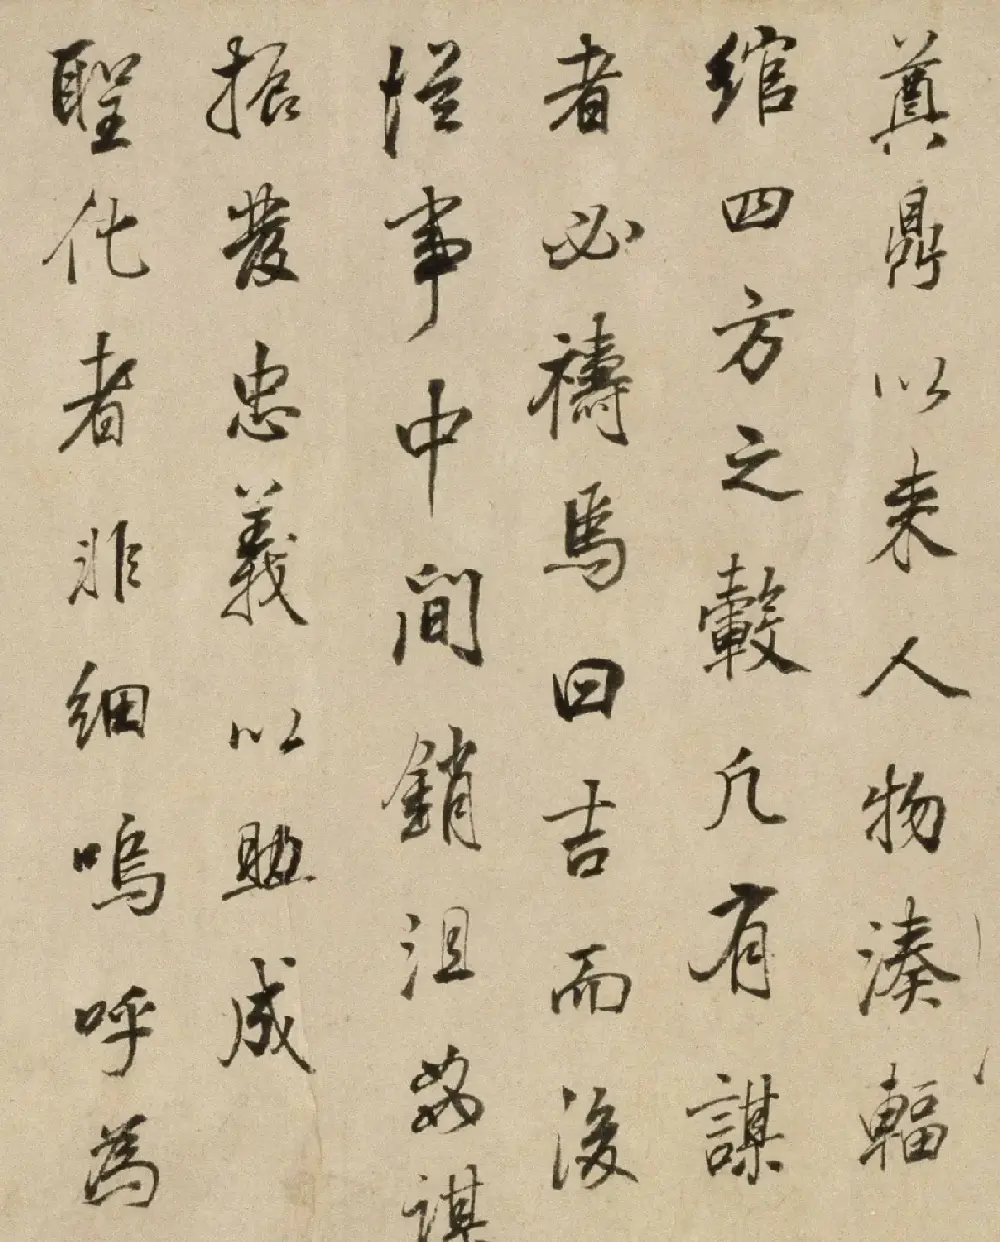 奠鼎以来人物湊輻
綰四方之轂凡有謀
者必禱焉曰吉而後
從事中间銷沮姦謀
振發忠義以助成
聖化者非細嗚呼為